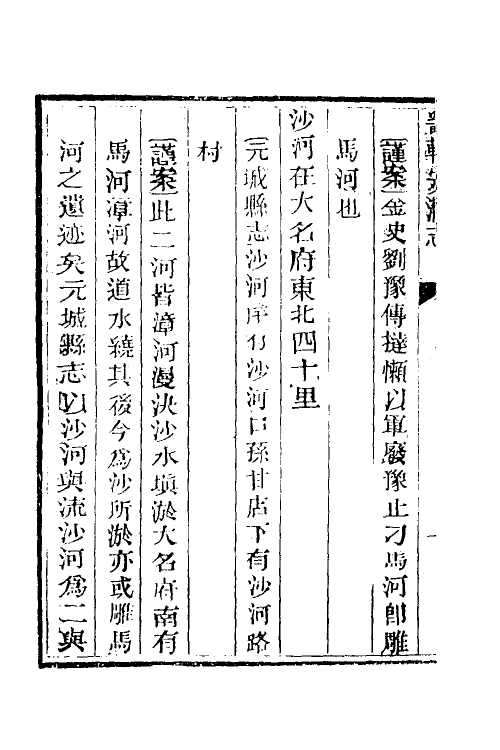 謹案金史劉豫傳撻懶以軍廢豫止刁馬河卽雕
馬河也
沙河在大名府東北四十里
元城縣志沙河岸有沙河口孫甘店下有沙河路
村
謹案此二河皆漳河漫決沙水塡淤大名府南有
馬河漳河故道水繞其後今爲沙所淤亦或雕馬
河之遺迹矣元城縣志以沙河與流沙河爲二與